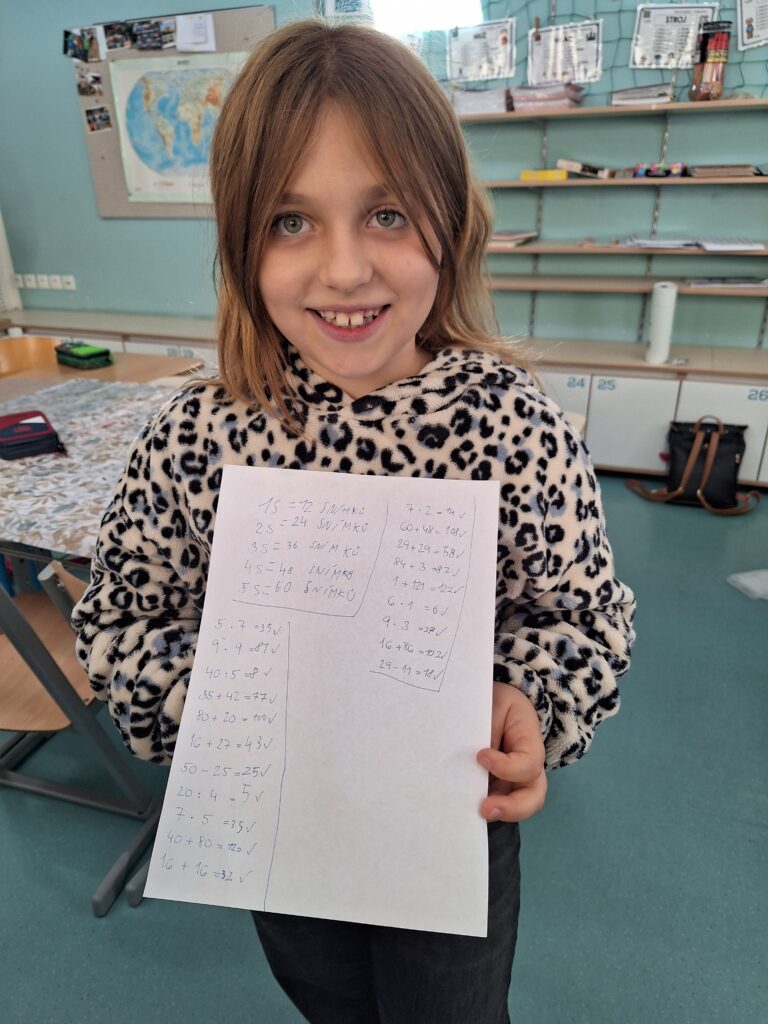 STROJ
1S = 12 SNÍMKŮ
2S = 24 SNÍMKŮ
3S = 36 SNÍMKŮ
4S = 48 SNÍMKŮ
5S = 60 SNÍMKŮ
5 · 7 = 35 ✓
9 · 9 = 81 ✓
40 : 5 = 8 ✓
35 + 42 = 77 ✓
80 + 20 = 100 ✓
16 + 27 = 43 ✓
50 - 25 = 25 ✓
20 : 4 = 5 ✓
7 · 5 = 35 ✓
40 + 80 = 120 ✓
16 + 16 = 32 ✓
7 · 2 = 14 ✓
60 + 48 = 108 ✓
29 + 29 = 58 ✓
84 + 3 = 87 ✓
1 + 121 = 122 ✓
6 · 1 = 6 ✓
9 · 3 = 27 ✓
16 + 86 = 102 ✓
29 - 11 = 18 ✓
24
25
26